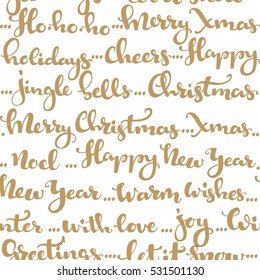 ...Ho ho ho...Merry Xmas
holidays...cheers...Happy
...jingle bells...Christmas
Merry Christmas...Xmas...
...Noel...Happy New Year,
New Year...warm wishes...
nter...with love...joy...Wi
Greetings...let it snow...
shutterstock.com · 531501130